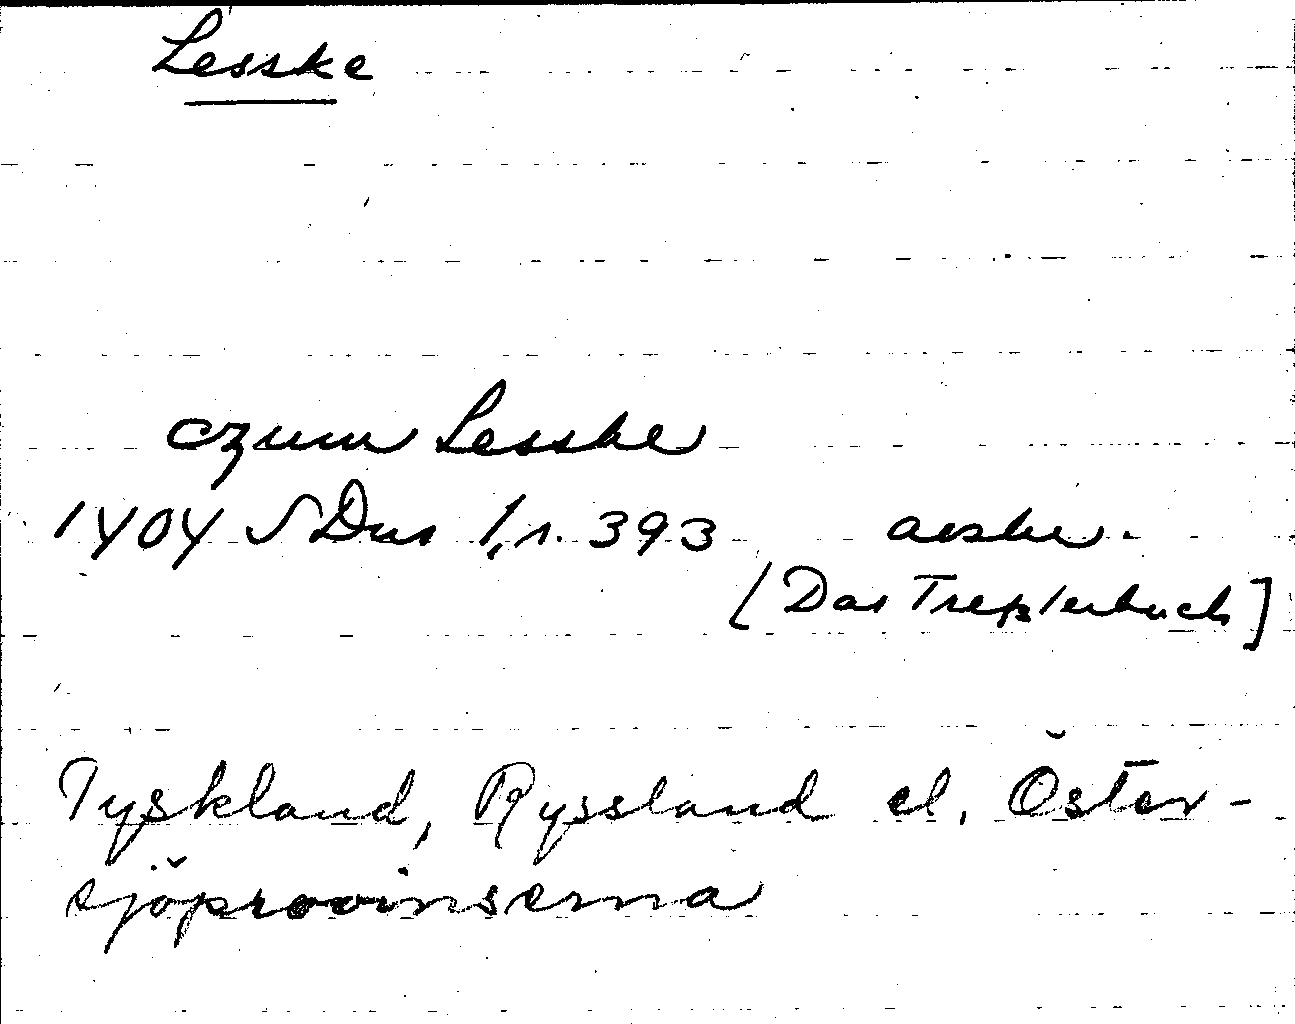 Lesske
czum Lesske
1404 SDns 1, s. 393 avskr.
[Das Treßlerbuch]
Tyskland, Ryssland el. Öster-
sjöprovinserna